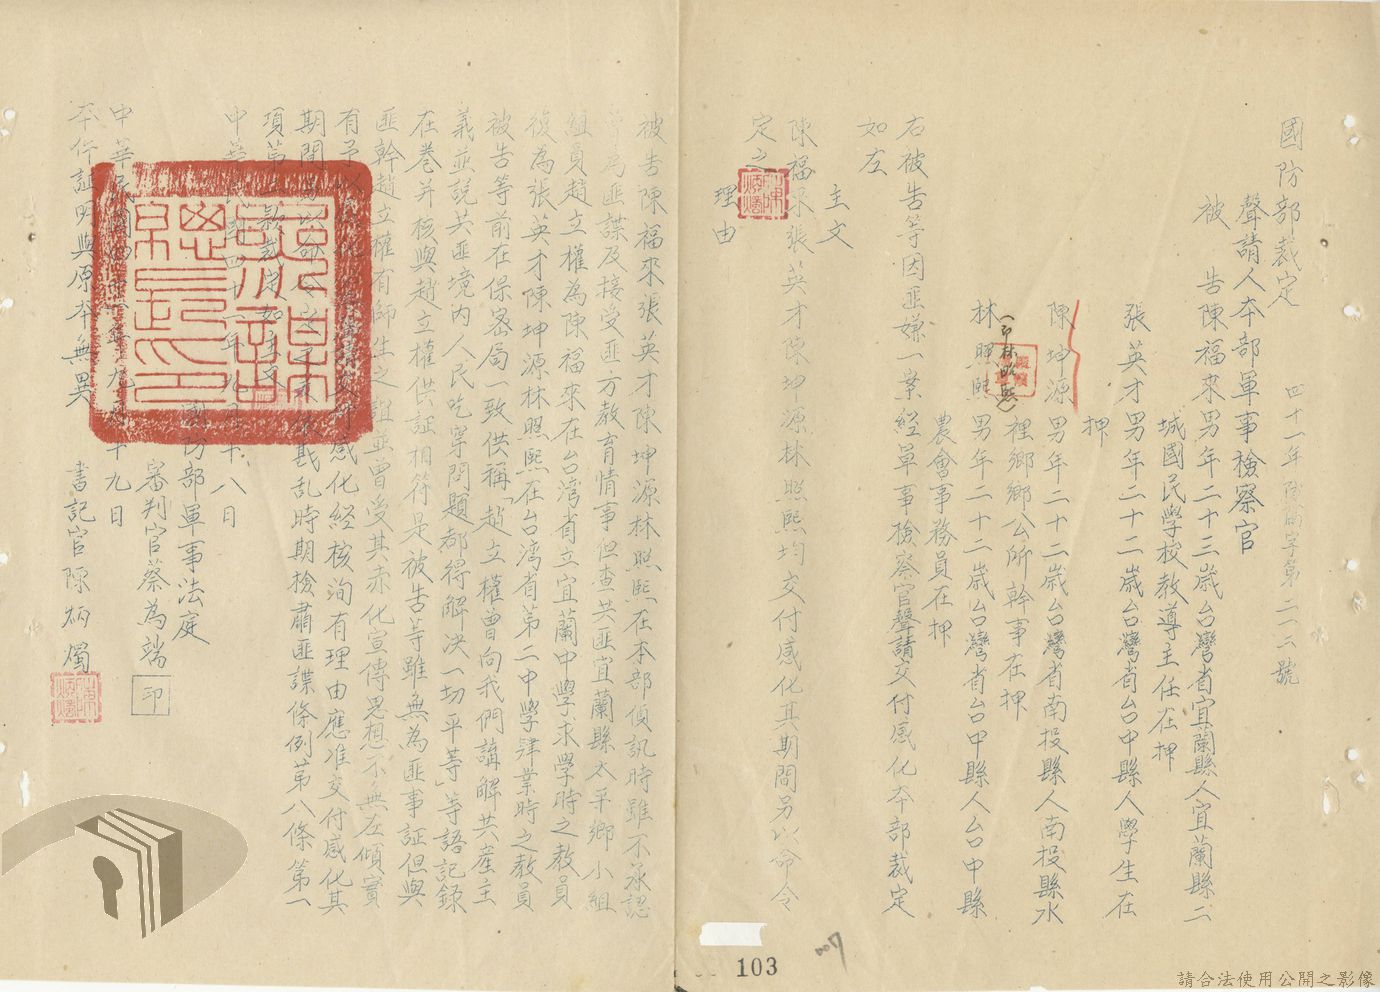 國防部裁定
四十一年 字第二二二號
聲請人本部軍事檢察官
被告陳福來男年二十三歲台灣省宜蘭縣人宜蘭縣二
城國民學校教導主任在押
張英才男年二十二歲台灣省台中縣人學生在
押
陳坤源男年二十二歲台灣省南投縣人南投縣水
裡鄉鄉公所幹事在押
(即林照熙)
林照熙男年二十二歲台灣省台中縣人台中縣
農會事務員在押
右被告等因匪嫌一案經軍事檢察官聲請交付感化本部裁定
如左
主文
陳福來張英才陳坤源林照熙均交付感化其期間另以命令
定之
理由
被告陳福來張英才陳坤源林照熙在本部偵訊時雖不承認
曾為匪諜及接受匪方教育情事但查共匪宜蘭縣太平鄉小組
組員趙立權為陳福來在台湾省立宜蘭中學求學時之教員
復為張英才陳坤源林照熙在台湾省第二中學肄業時之教員
被告等前在保密局一致供稱「趙立權曾向我們講解共產主
義並說共匪境内人民吃穿問題都得解决一切平等」等語記録
在卷并核與趙立權供証相符是被告等雖無為匪事証但與
匪幹趙立權有師生之誼並曾受其赤化宣傳思想不無左傾實
有予以感化 聲請交付感化經核洵有理由應准交付感化其
期間另以命令定之 戡乱時期檢肅匪諜條例第八條第一
項第二款裁定如主文
中華民國四十一年九月十八日
國防部軍事法庭
審判官蔡為端
印
中華民國四十一年九月十九日
本件証明與原本無異
書記官陳炳燭
103
007
請合法使用公開之影像